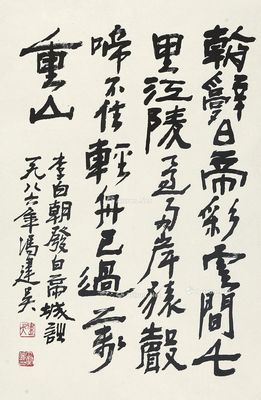 朝辭白帝彩雲間千
里江陵還兩岸猿聲
啼不住輕舟已過萬
重山
李白朝發白帝城詩
一九八六年馮建吳